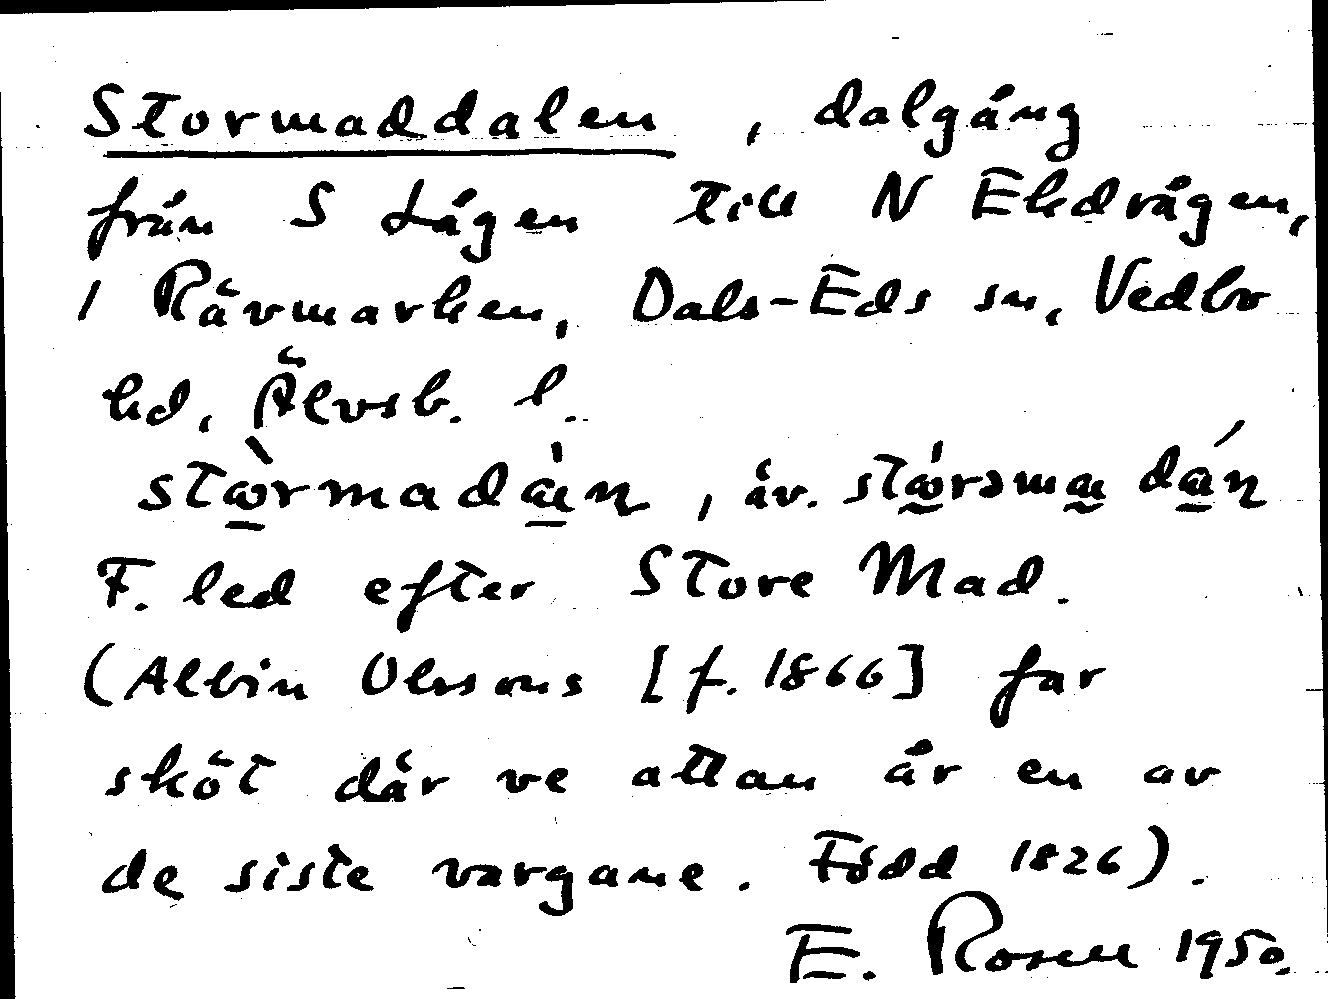 Stormaddalen, dalgång
från S Lågen till N Ekdrågen,
i Rävmarken, Dals-Eds sn, Vedbo
hd, Älvsb. l.
stæ̀rmadæ̀ɳ, äv. stǽrəmæ dáɳ
F. led efter Store Mad.
(Albin Olssons [f. 1866] far
sköt där ve attan år en av
de siste vargane. Född 1826).
E. Rosell 1950.